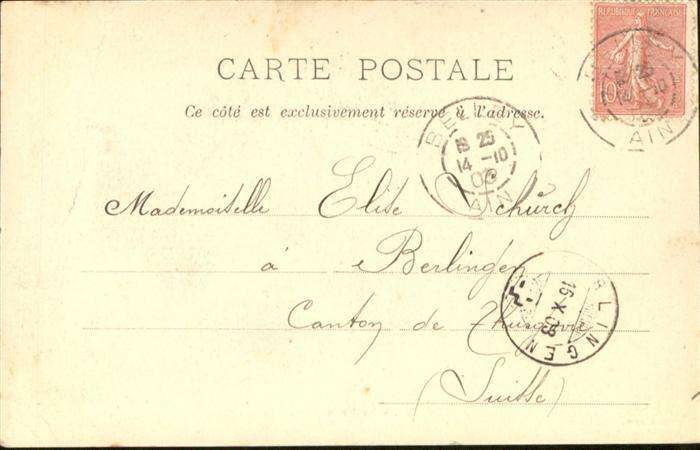 REPUBLIQUE FRANÇAISE
CARTE POSTALE
Ce côté est exclusivement réservé à l'adresse.
BELLEY
18 25
14 -10
03
AIN
AIN
Mademoiselle Elise Schürch
à Berlingen
Canton de Thurgovie
(Suisse)
BERLINGEN
15.X.03